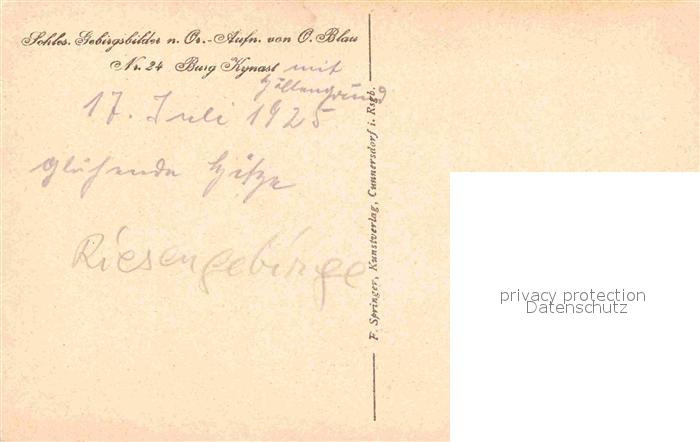 Schles. Gebirgsbilder n. Or.-Aufn. von O. Blau
Nr. 24 Burg Kynast mit
Höllengrund
17. Juli 1925
glühende Hitze
Riesengebirge
F. Springer, Kunstverlag, Cunnersdorf i. Rsgb.
privacy protection
Datenschutz